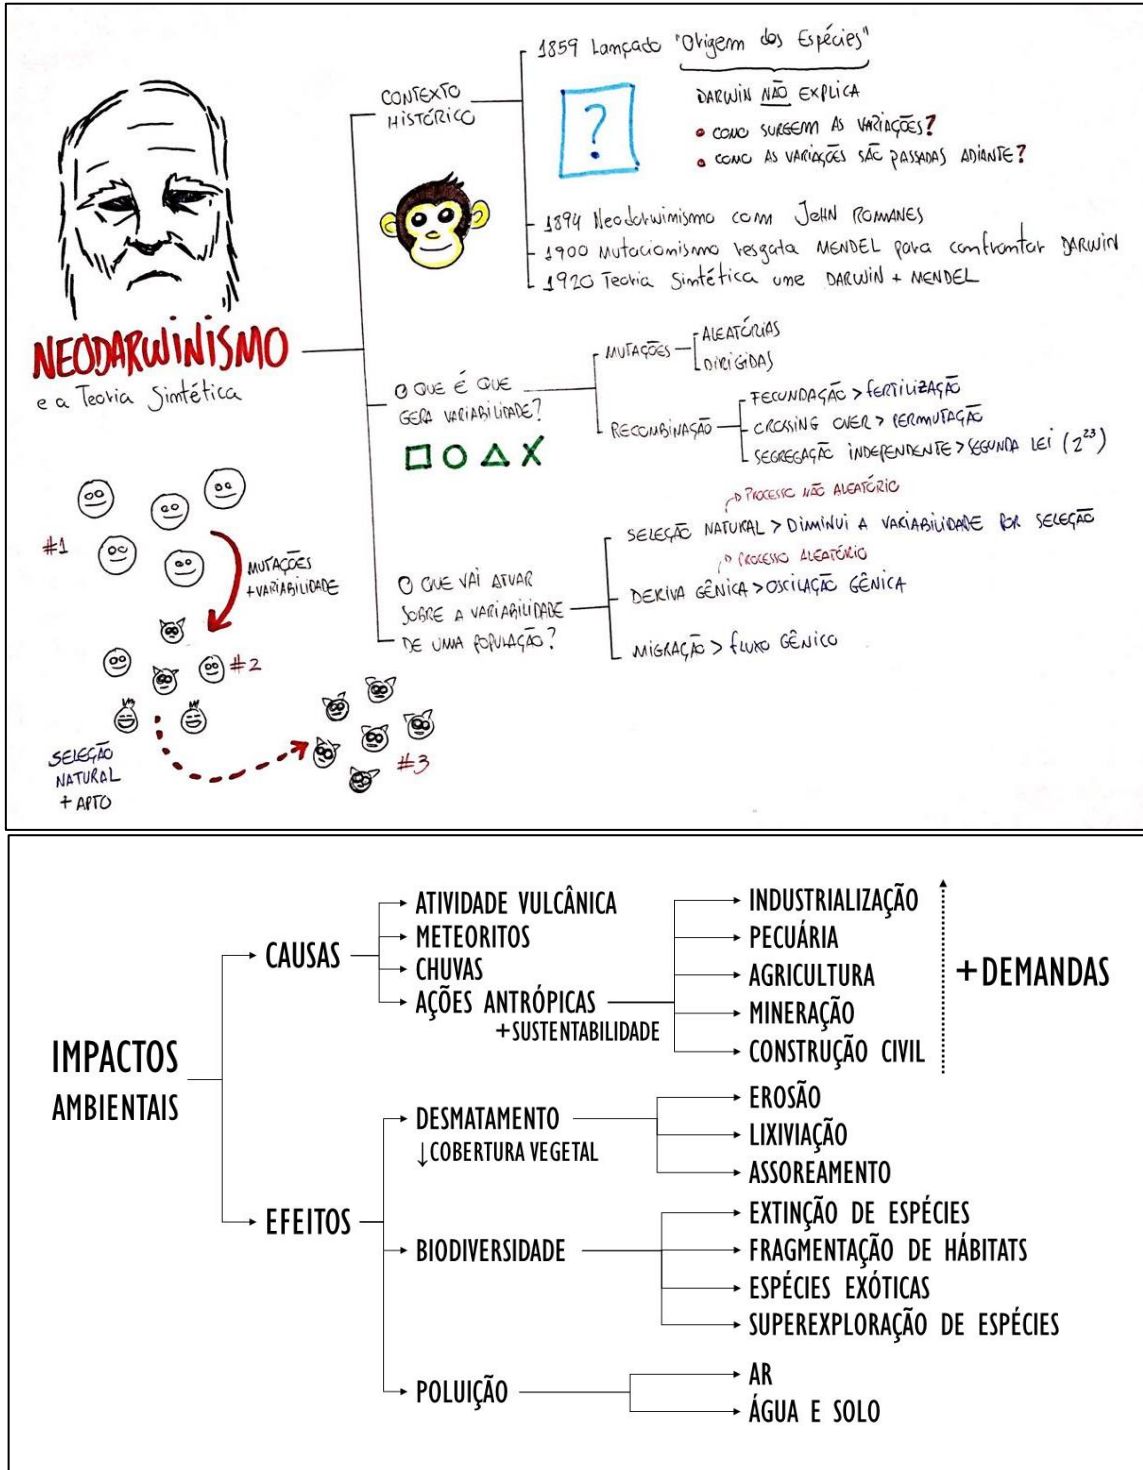 CONTEXTO
HISTÓRICO
1859 Lançado "Origem dos Espécies"
DARWIN NÃO EXPLICA
• COMO SURGEM AS VARIAÇÕES?
• COMO AS VARIAÇÕES SÃO PASSADAS ADIANTE?
?
1894 Neodarwinismo com JOHN ROMANES
1900 Mutacionismo resgata MENDEL para confrontar DARWIN
1920 Teoria Sintética une DARWIN + MENDEL
NEODARWINISMO
e a Teoria Sintética
O QUE É QUE
GERA VARIABILIDADE?
MUTAÇÕES
ALEATÓRIAS
DIRIGIDAS
RECOMBINAÇÃO
FECUNDAÇÃO > fERTILIZAÇÃO
CROSSING OVER > PERMUTAÇÃO
SEGREGAÇÃO INDEPENDENTE > SEGUNDA LEI (2²³)
O QUE VAI ATUAR
SOBRE A VARIABILIDADE
DE UMA POPULAÇÃO?
PROCESSO NÃO ALEATÓRIO
SELEÇÃO NATURAL > DIMINUI A VARIABILIDADE POR SELEÇÃO
PROCESSO ALEATÓRIO
DERIVA GÊNICA > OSCILAÇÃO GÊNICA
MIGRAÇÃO > fLUXO GÊNICO
#1
MUTAÇÕES
+VARIABILIDADE
#2
SELEÇÃO
NATURAL
+ APTO
#3
IMPACTOS
AMBIENTAIS
CAUSAS
ATIVIDADE VULCÂNICA
METEORITOS
CHUVAS
AÇÕES ANTRÓPICAS
+SUSTENTABILIDADE
INDUSTRIALIZAÇÃO
PECUÁRIA
AGRICULTURA
MINERAÇÃO
CONSTRUÇÃO CIVIL
+DEMANDAS
EFEITOS
DESMATAMENTO
↓COBERTURA VEGETAL
EROSÃO
LIXIVIAÇÃO
ASSOREAMENTO
BIODIVERSIDADE
EXTINÇÃO DE ESPÉCIES
FRAGMENTAÇÃO DE HÁBITATS
ESPÉCIES EXÓTICAS
SUPEREXPLORAÇÃO DE ESPÉCIES
POLUIÇÃO
AR
ÁGUA E SOLO